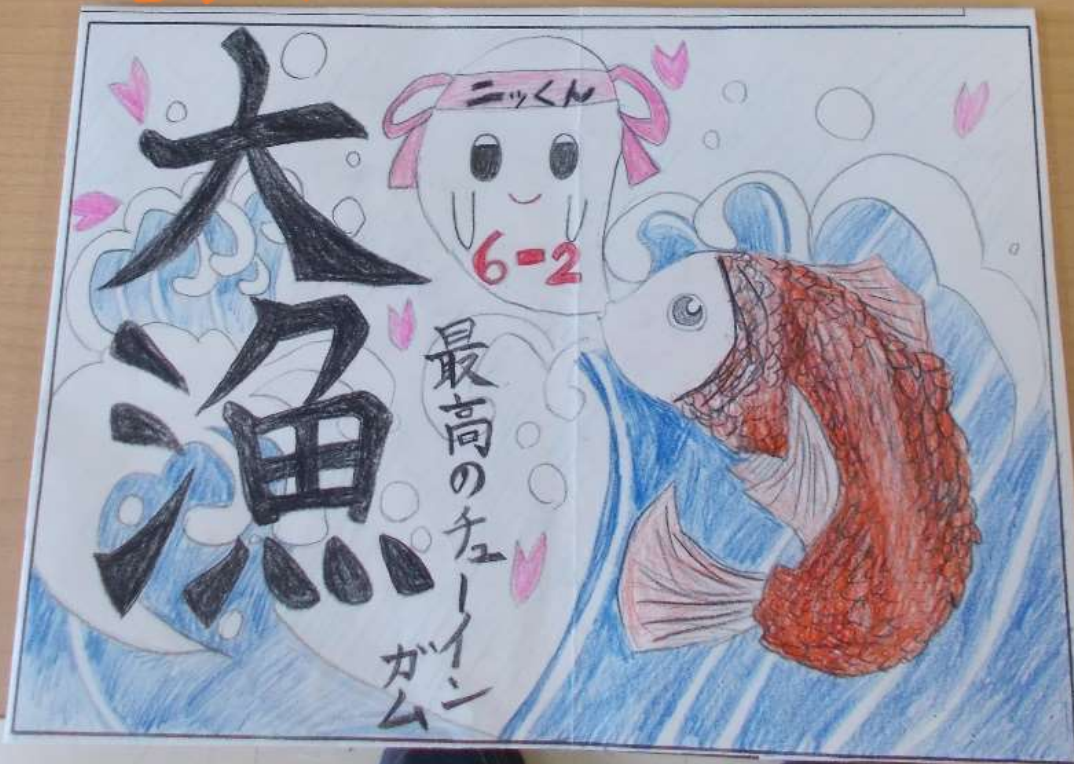 大漁
ニッくん
6-2
最高のチューイン
ガム